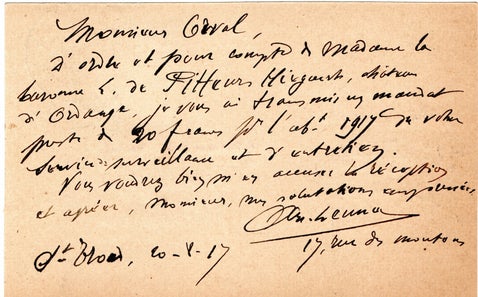 Monsieur Orval,
D'ordre et pour compte de Madame la
baronne L. de Pitteurs Hiégaerts, château
d'Ordange, je vous ai transmis un mandat
poste de 20 francs pr l'abt 1917 de votre
service surveillance et d'entretien.
Vous voudrez bien m'en accuser la réception
et agréer, Monsieur, mes salutations empressées
St Trond, 20-8-17
17, rue des moutons